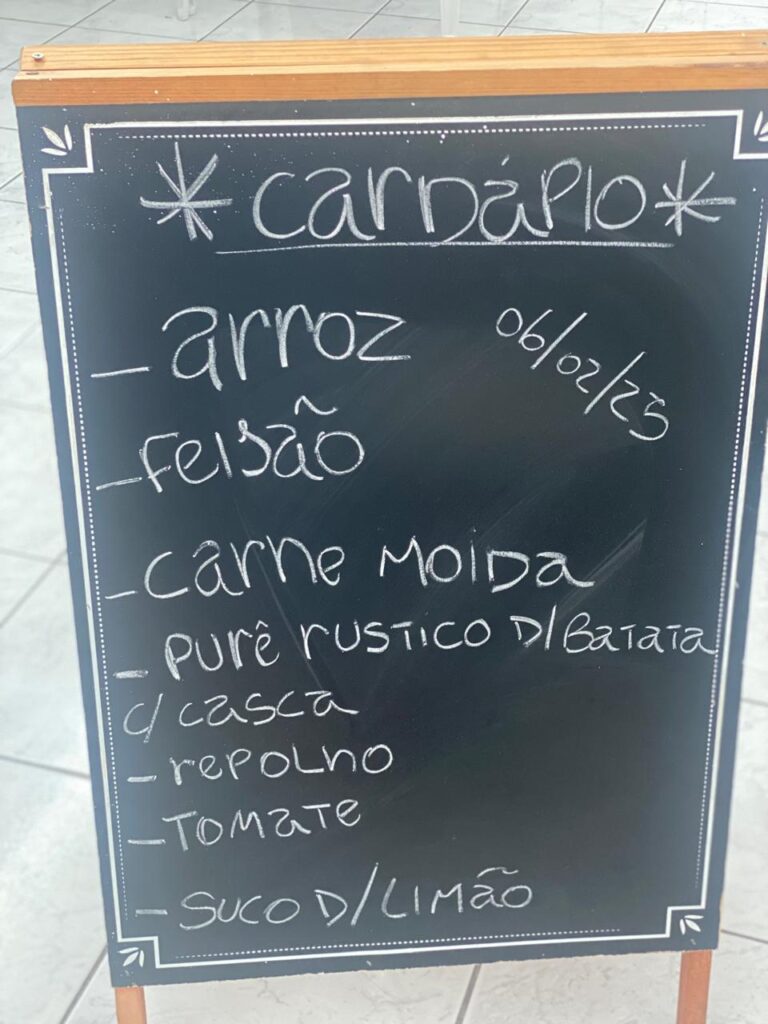 * cardápio *
- arroz
06/02/25
- feijão
- carne moida
- purê rustico D/Batata
c/ casca
- repolho
- Tomate
- suco D/Limão